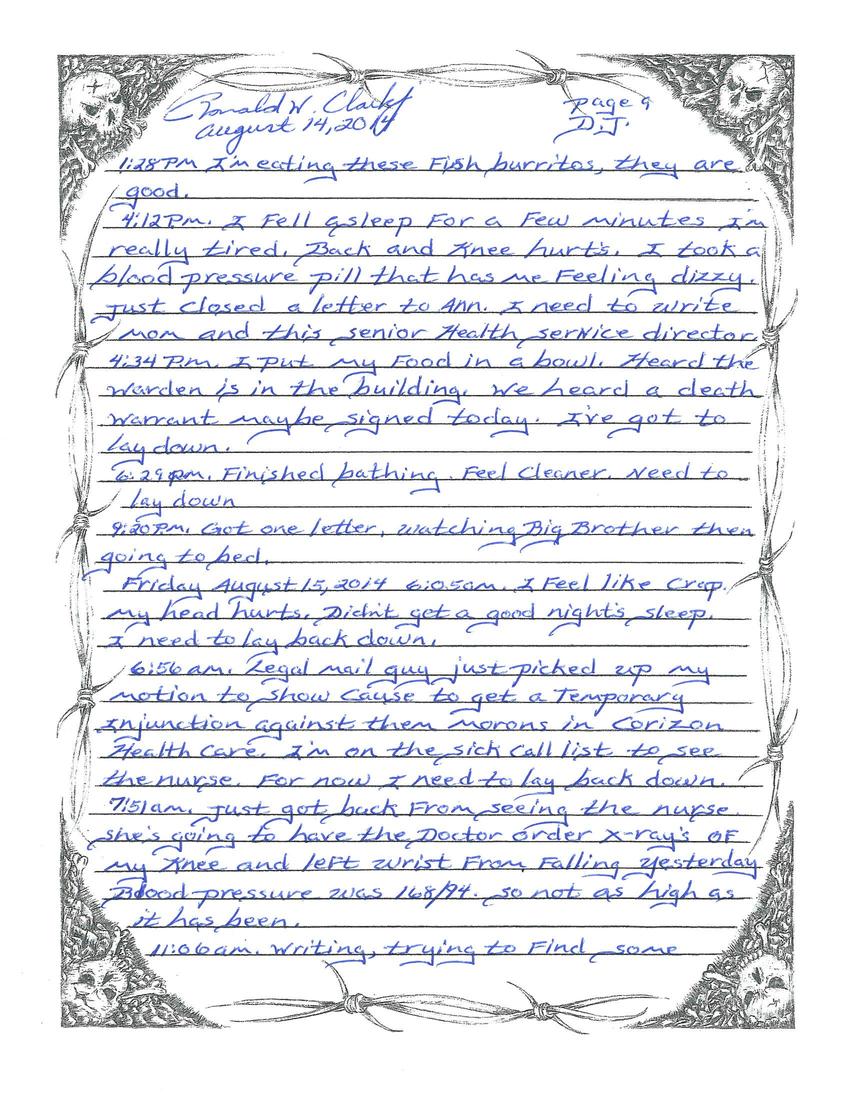 Ronald W. Clark Jr
August 14, 2014
Page 9
D.J.
1:28 PM I'm eating these Fish burritos, they are
good.
4:12 P.m. I Fell asleep For a Few minutes I'm
really tired. Back and Knee hurt's. I took a
blood pressure pill that has me Feeling dizzy.
Just closed a letter to Ann. I need to write
Mom and this senior Health service director.
4:34 P.m. I put my Food in a bowl. Heard the
Warden is in the building. We heard a death
warrant maybe signed today. I've got to
lay down.
6:29 pm. Finished bathing. Feel Cleaner. Need to
lay down
9:20 P.m. Got one letter, watching Big Brother then
going to bed.
Friday August 15, 2014 6:05am. I Feel like Crap.
my head hurts. Didn't get a good night's sleep.
I need to lay back down.
6:56 am. Legal mail guy just picked up my
motion to show Cause to get a Temporary
Injunction against them morons in Corizon
Health Care. I'm on the sick Call list to see
the nurse. For now I need to lay back down.
7:51 am. Just got back From seeing the nurse.
she's going to have the Doctor order X-ray's OF
my Knee and left wrist From Falling yesterday
Blood pressure was 168/94. so not as high as
it has been.
11:06 am. Writing, trying to Find some